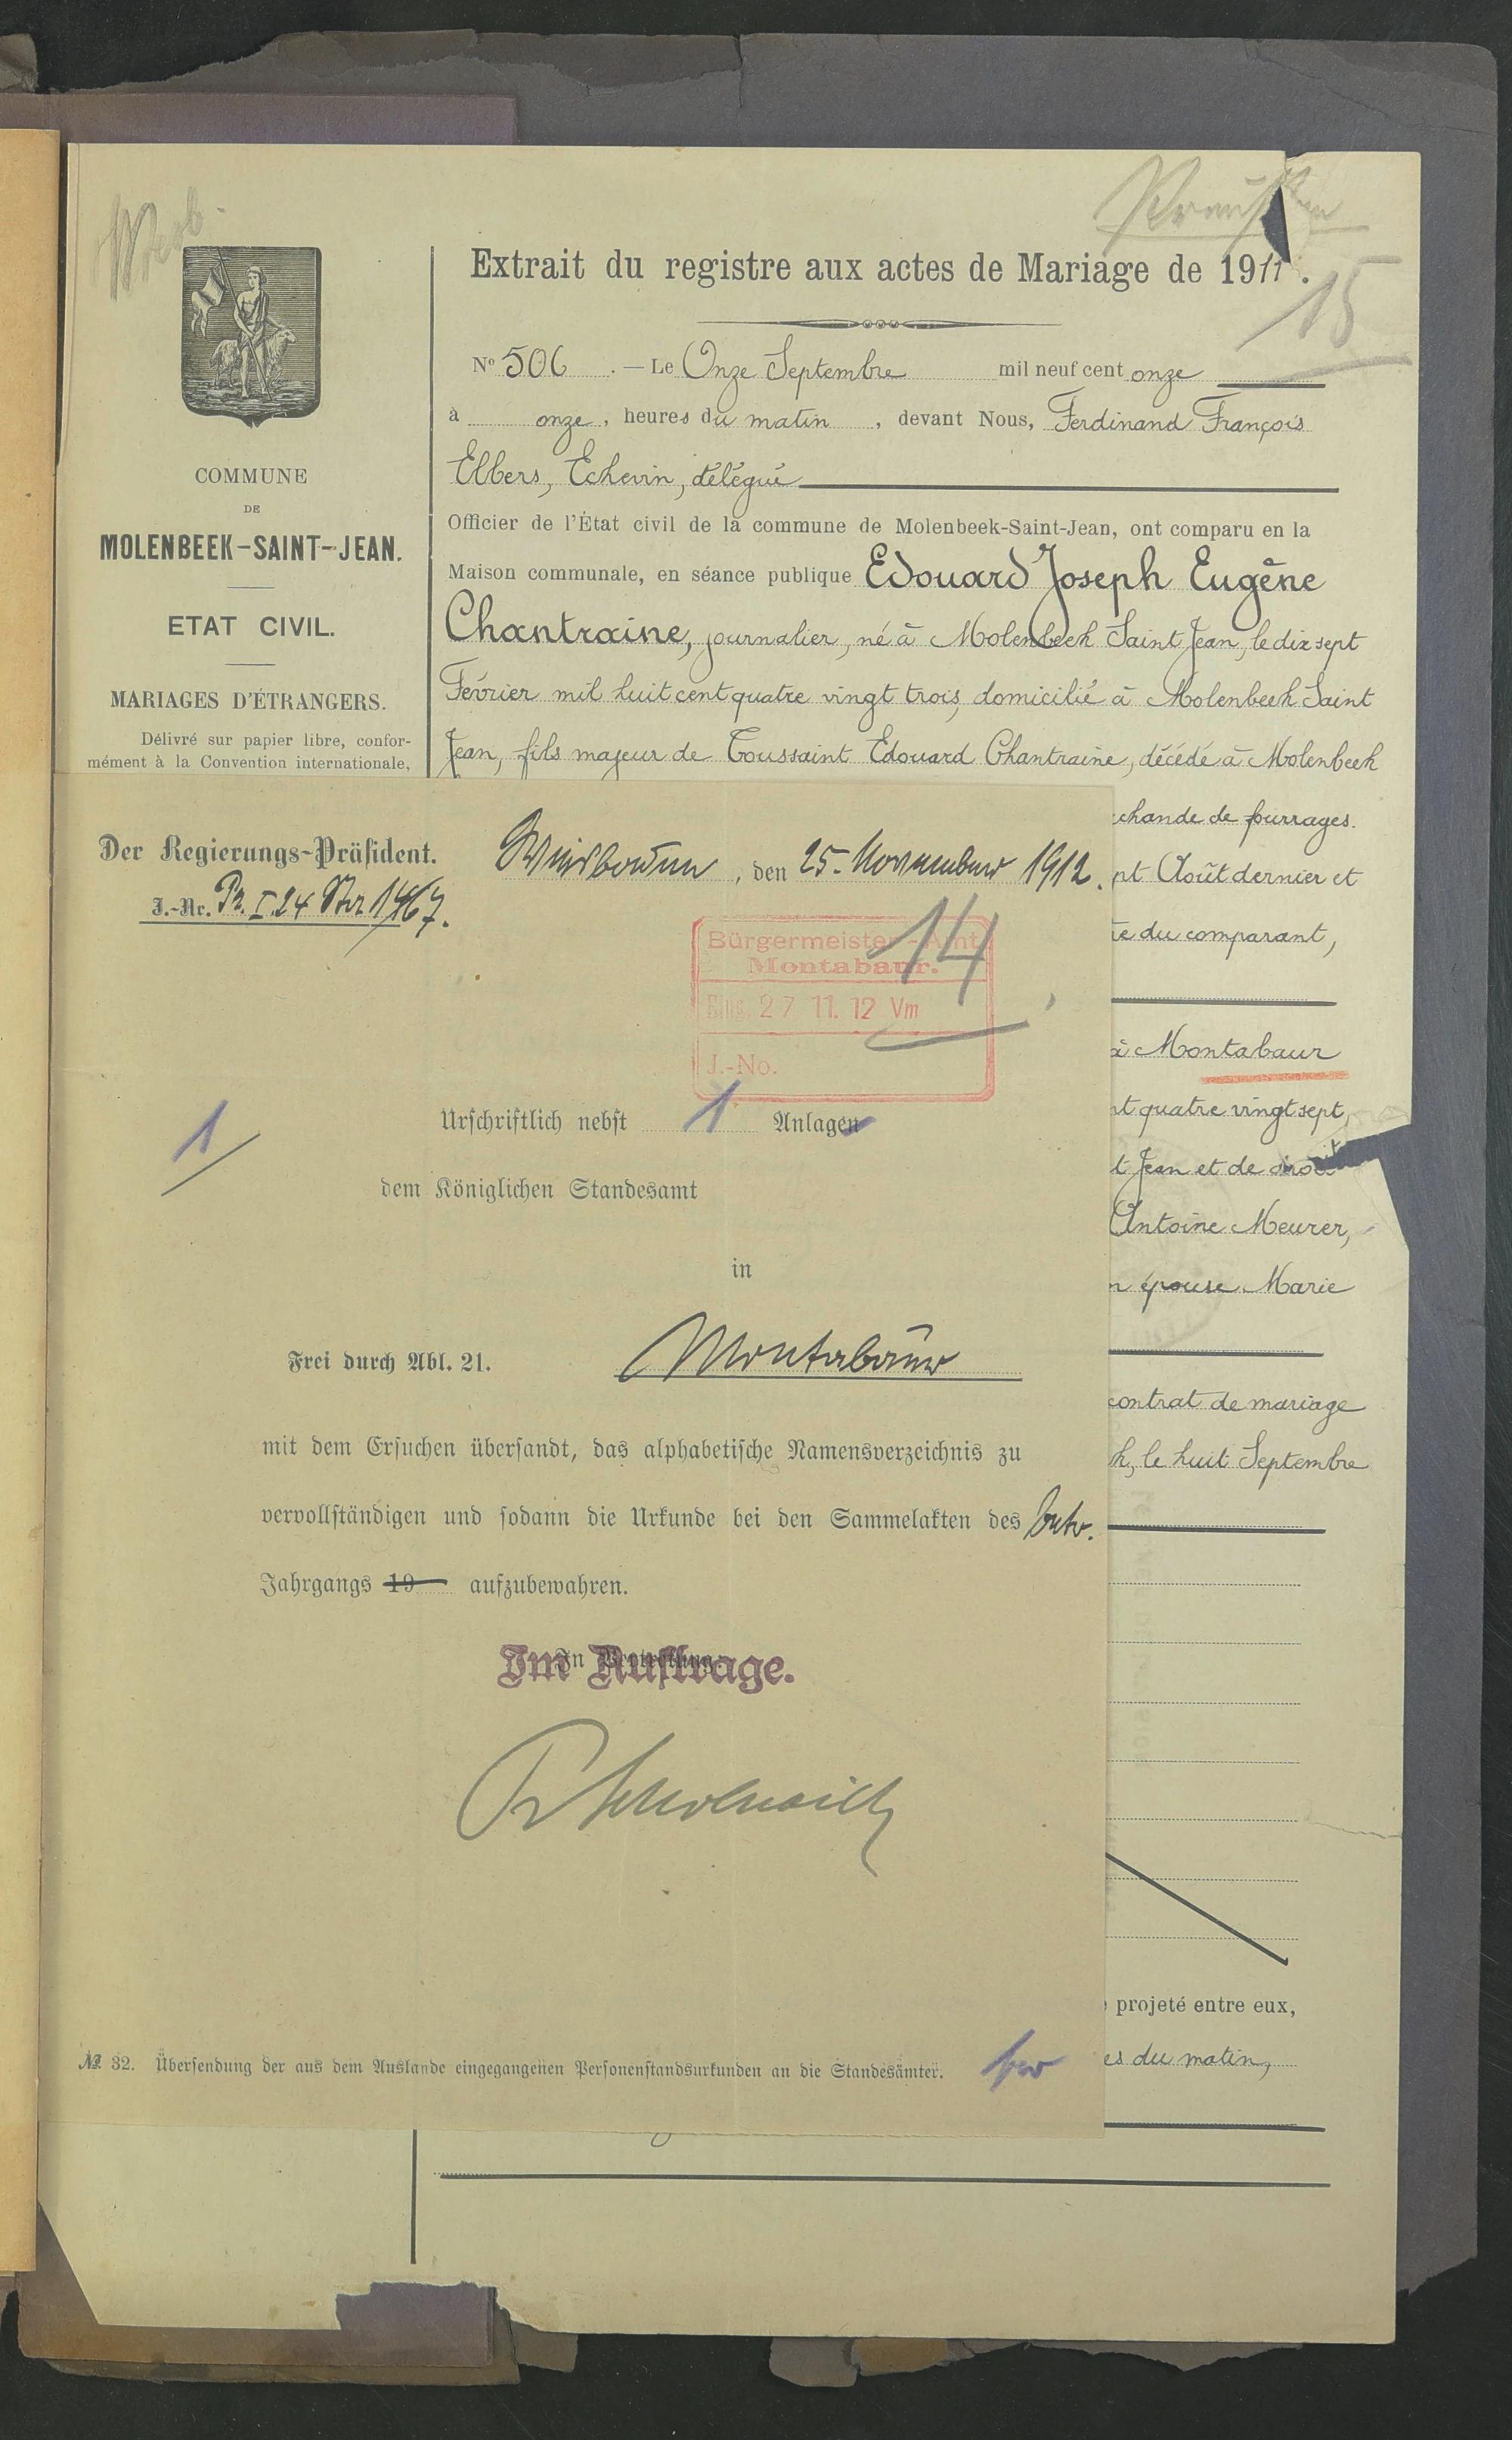 Extrait du registre aux actes de Mariage de 1911.
15
COMMUNE
DE
MOLENBEEK-SAINT-JEAN.
ETAT CIVIL.
MARIAGES D'ÉTRANGERS.
Délivré sur papier libre, confor-
mément à la Convention internationale,
No 506. — Le Onze Septembre mil neuf cent onze
à onze, heures du matin, devant Nous, Ferdinand François
Elbers, Echevin, délégué
Officier de l'État civil de la commune de Molenbeek-Saint-Jean, ont comparu en la
Maison communale, en séance publique Edouard Joseph Eugène
Chantraine, journalier, né à Molenbeek Saint Jean, le dix sept
Février mil huit cent quatre vingt trois, domicilié à Molenbeek Saint
Jean, fils majeur de Toussaint Edouard Chantraine, décédé à Molenbeek
chande de fourrages.
pt Août dernier et
du comparant,
à Montabaur
nt quatre vingt sept,
t Jean et de droit
Antoine Meurer,
n épouse Marie
contrat de mariage
k, le huit Septembre
projeté entre eux,
es du matin,
Der Regierungs-Präsident.
J.-Nr. Pr. I. 24 1467.
Wiesbaden, den 25. November 1912.
14
Bürgermeister-Amt
Montabaur.
Eing. 27 11. 12 Vm
J.-No.
1
Urschriftlich nebst 1 Anlagen
dem Königlichen Standesamt
in
Frei durch Abl. 21. Montabaur
mit dem Ersuchen übersandt, das alphabetische Namensverzeichnis zu
vervollständigen und sodann die Urkunde bei den Sammelakten des betr.
Jahrgangs 19 aufzubewahren.
In Vertretung
Im Auftrage.
№ 32. Übersendung der aus dem Auslande eingegangenen Personenstandsurkunden an die Standesämter.